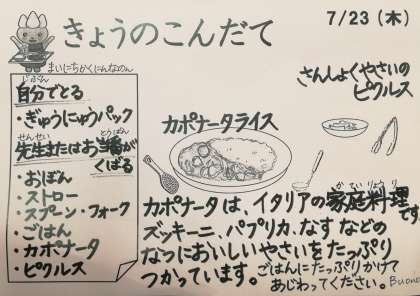 きょうのこんだて
7/23(木)
まいにちかくにんなのん
自分でとる
じぶん
・ぎゅうにゅうパック
先生またはお当番が
せんせい
とうばん
くばる
・おぼん
・ストロー
・スプーン・フォーク
・ごはん
・カポナータ
・ピクルス
さんしょくやさいの
ピクルス
カポナータライス
カポナータは、イタリアの家庭料理です
かていりょうり
ズッキーニ、パプリカ、なすなどの
なつにおいしいやさいをたっぷり
つかっています。
ごはんにたっぷりかけて
あじわってください。
Buono